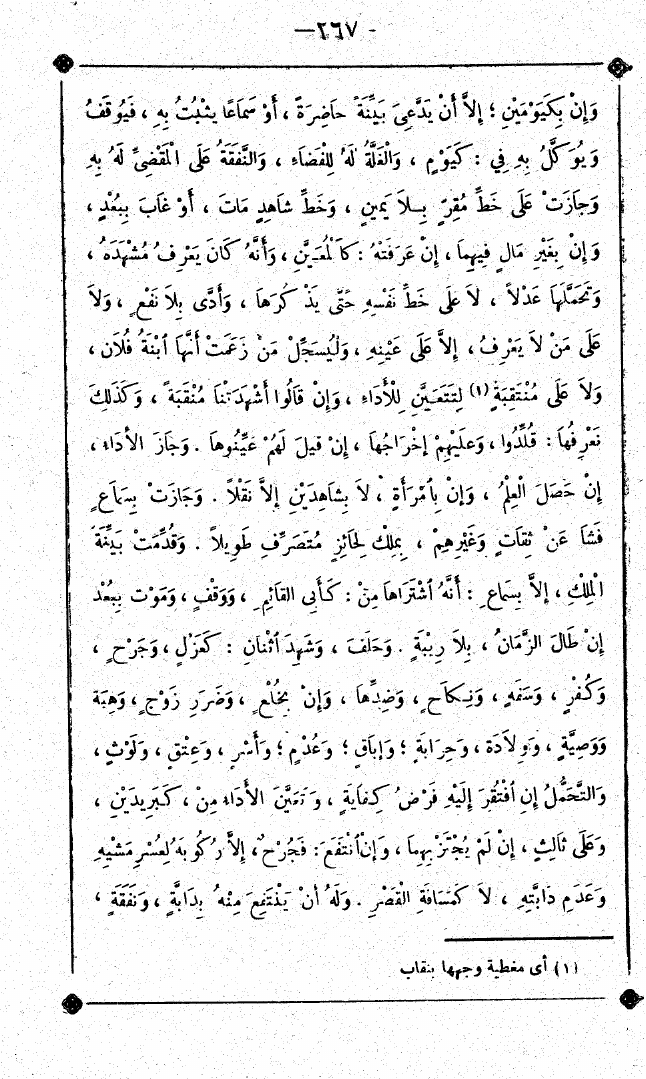 - ٢٦٧ —
وَإِنْ بِكَيَوْمَيْنِ ؛ إِلاَّ أَنْ يَدَّعِىَ بَيِّنَةً حَاضِرَةً ، أَوْ سَمَاعًا يَثْبُتُ بِهِ ، فَيُوقَفُ
وَيُوَكَّلُ بِهِ فِي : كَيَوْمٍ ، وَالْغَلَّةُ لَهُ لِلْقَضَاءِ ، وَالنَّفَقَةُ عَلَى الْمَقْضِىِّ لَهُ بِهِ
وَجَازَتْ عَلَى خَطِّ مُقِرٍّ بِلاَ يَمِينٍ ، وَخَطِّ شَاهِدٍ مَاتَ ، أَوْ غَابَ بِبُعْدٍ ،
وَإِنْ بِغَيْرِ مَالٍ فِيهِمَا ، إِنْ عَرَفَتْهُ : كَالْمُعَيَّنِ ، وَأَنَّهُ كَانَ يَعْرِفُ مُشْهِدَهُ ،
وَتَحَمَّلَهَا عَدْلاً ، لاَ عَلَى خَطِّ نَفْسِهِ حَتَّى يَذْكُرَهَا ، وَأَدَّى بِلاَ نَفْعٍ ، وَلاَ
عَلَى مَنْ لاَ يَعْرِفُ ، إِلاَّ عَلَى عَيْنِهِ ، وَلْيُسَجِّلْ مَنْ زَعَمَتْ أَنَّهَا ابْنَةُ فُلاَنٍ ،
وَلاَ عَلَى مُنْتَقِبَةٍ (١) لِتَتَعَيَّنَ لِلْأَدَاءِ ، وَإِنْ قَالُوا أَشْهَدَتْنَا مُنْتَقِبَةً ، وَكَذَلِكَ
نَعْرِفُهَا : قُلِّدُوا ، وَعَلَيْهِمْ إِخْرَاجُهَا ، إِنْ قِيلَ لَهُمْ عَيِّنُوهَا . وَجَازَ الأَدَاءُ ،
إِنْ حَصَلَ الْعِلْمُ ، وَإِنْ بِامْرَأَةٍ ، لاَ بِشَاهِدَيْنِ إِلاَّ نَقْلاً . وَجَازَتْ بِسَمَاعٍ
فَشَا عَنْ ثِقَاتٍ وَغَيْرِهِمْ ، بِمِلْكٍ لِحَائِزٍ مُتَصَرِّفٍ طَوِيلاً . وَقُدِّمَتْ بَيِّنَةُ
الْمِلْكِ ، إِلاَّ بِسَمَاعٍ : أَنَّهُ اشْتَرَاهَا مِنْ : كَأَبِى القَائِمِ ، وَوَقْفٍ ، وَمَوْتٍ بِبُعْدٍ
إِنْ طَالَ الزَّمَانُ ، بِلاَ رِيبَةٍ . وَحَلَفَ ، وَشَهِدَ اثْنَانِ : كَعَزْلٍ ، وَجَرْحٍ ،
وَكُفْرٍ ، وَسَفَهٍ ، وَنِكَاحٍ ، وَضِدِّهَا ، وَإِنْ بِخُلْعٍ ، وَضَرَرِ زَوْجٍ ، وَهِبَةٍ
وَوَصِيَّةٍ ، وَوِلاَدَةٍ ، وَحِرَابَةٍ ؛ وَإِبَاقٍ ؛ وَعُدْمٍ ؛ وَأَسْرٍ ، وَعِتْقٍ ، وَلَوْثٍ ،
وَالتَّحَمُّلُ إِنِ افْتُقِرَ إِلَيْهِ فَرْضُ كِفَايَةٍ ، وَتَعَيَّنَ الأَدَاءُ مِنْ ، كَبَرِيدَيْنِ ،
وَعَلَى ثَالِثٍ ، إِنْ لَمْ يُجْتَزْ بِهِمَا ، وَإِنِ انْتَفَعَ : فَجُرْحٌ ، إِلاَّ رُكُوبَهُ لِعُسْرِ مَشْيِهِ
وَعَدَمِ دَابَّتِهِ ، لاَ كَمَسَافَةِ الْقَصْرِ . وَلَهُ أَنْ يَنْتَفِعَ مِنْهُ بِدَابَّةٍ ، وَنَفَقَةٍ ،
(١) أى مغطية وجهها بنقاب